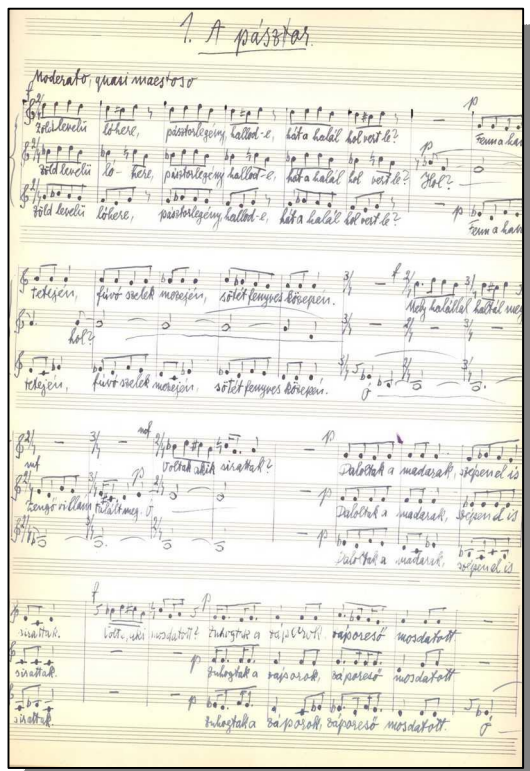 1. A pásztor.
Moderato, quasi maestoso
f p
Zöld levelü lóhere, pásztorlegény, hallod-e, hát a halál hol vert le? Fenn a hava
p
Zöld levelü ló- here, pásztorlegény hallod-e, hát a halál hol vert le? Hol?
p
Zöld levelü lóhere, pásztorlegény hallod-e, hát a halál hol vert le? Fenn a hava
f
tetején, fúvó szelek mezején, sötét fenyves közepén. Mely halállal haltál meg
hol?
tetején, fúvó szelek mezején, sötét fenyves közepén. Ó
mf p
Voltak akik sirattak? Daloltak a madarak, szépen el is
mf p p
Zengő villám talált meg. Ó Daloltak a madarak, szépen el is
p
Daloltak a madarak, szépen el is
f p
sirattak. Volt-e, aki mosdatott? Zuhogtak a záporok, záporeső mosdatott
p
sirattak. Zuhogtak a záporok, záporeső mosdatott
p
sirattak. Zuhogtak a záporok, záporeső mosdatott. Ó